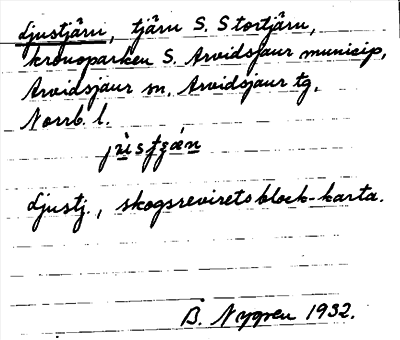 Ljustjärn, tjärn S. Stortjärn,
kronoparken S. Arvidsjaur municip,
Arvidsjaur sn. Arvidsjaur tg,
Norrb. l.
Ljustj., skogsrevirets block-karta.
B. Nygren 1932.